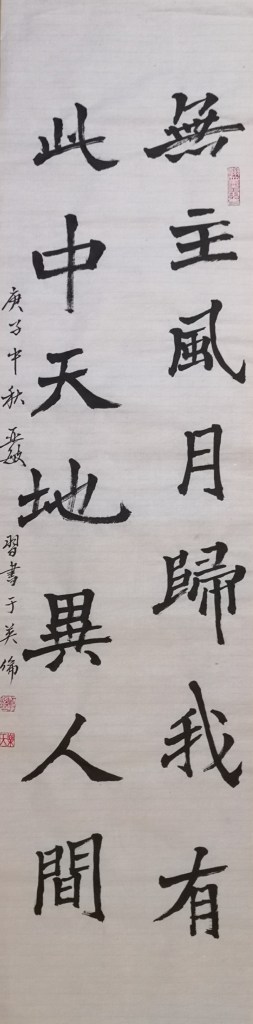 無主風月歸我有
此中天地異人間
庚子中秋
習書于英倫